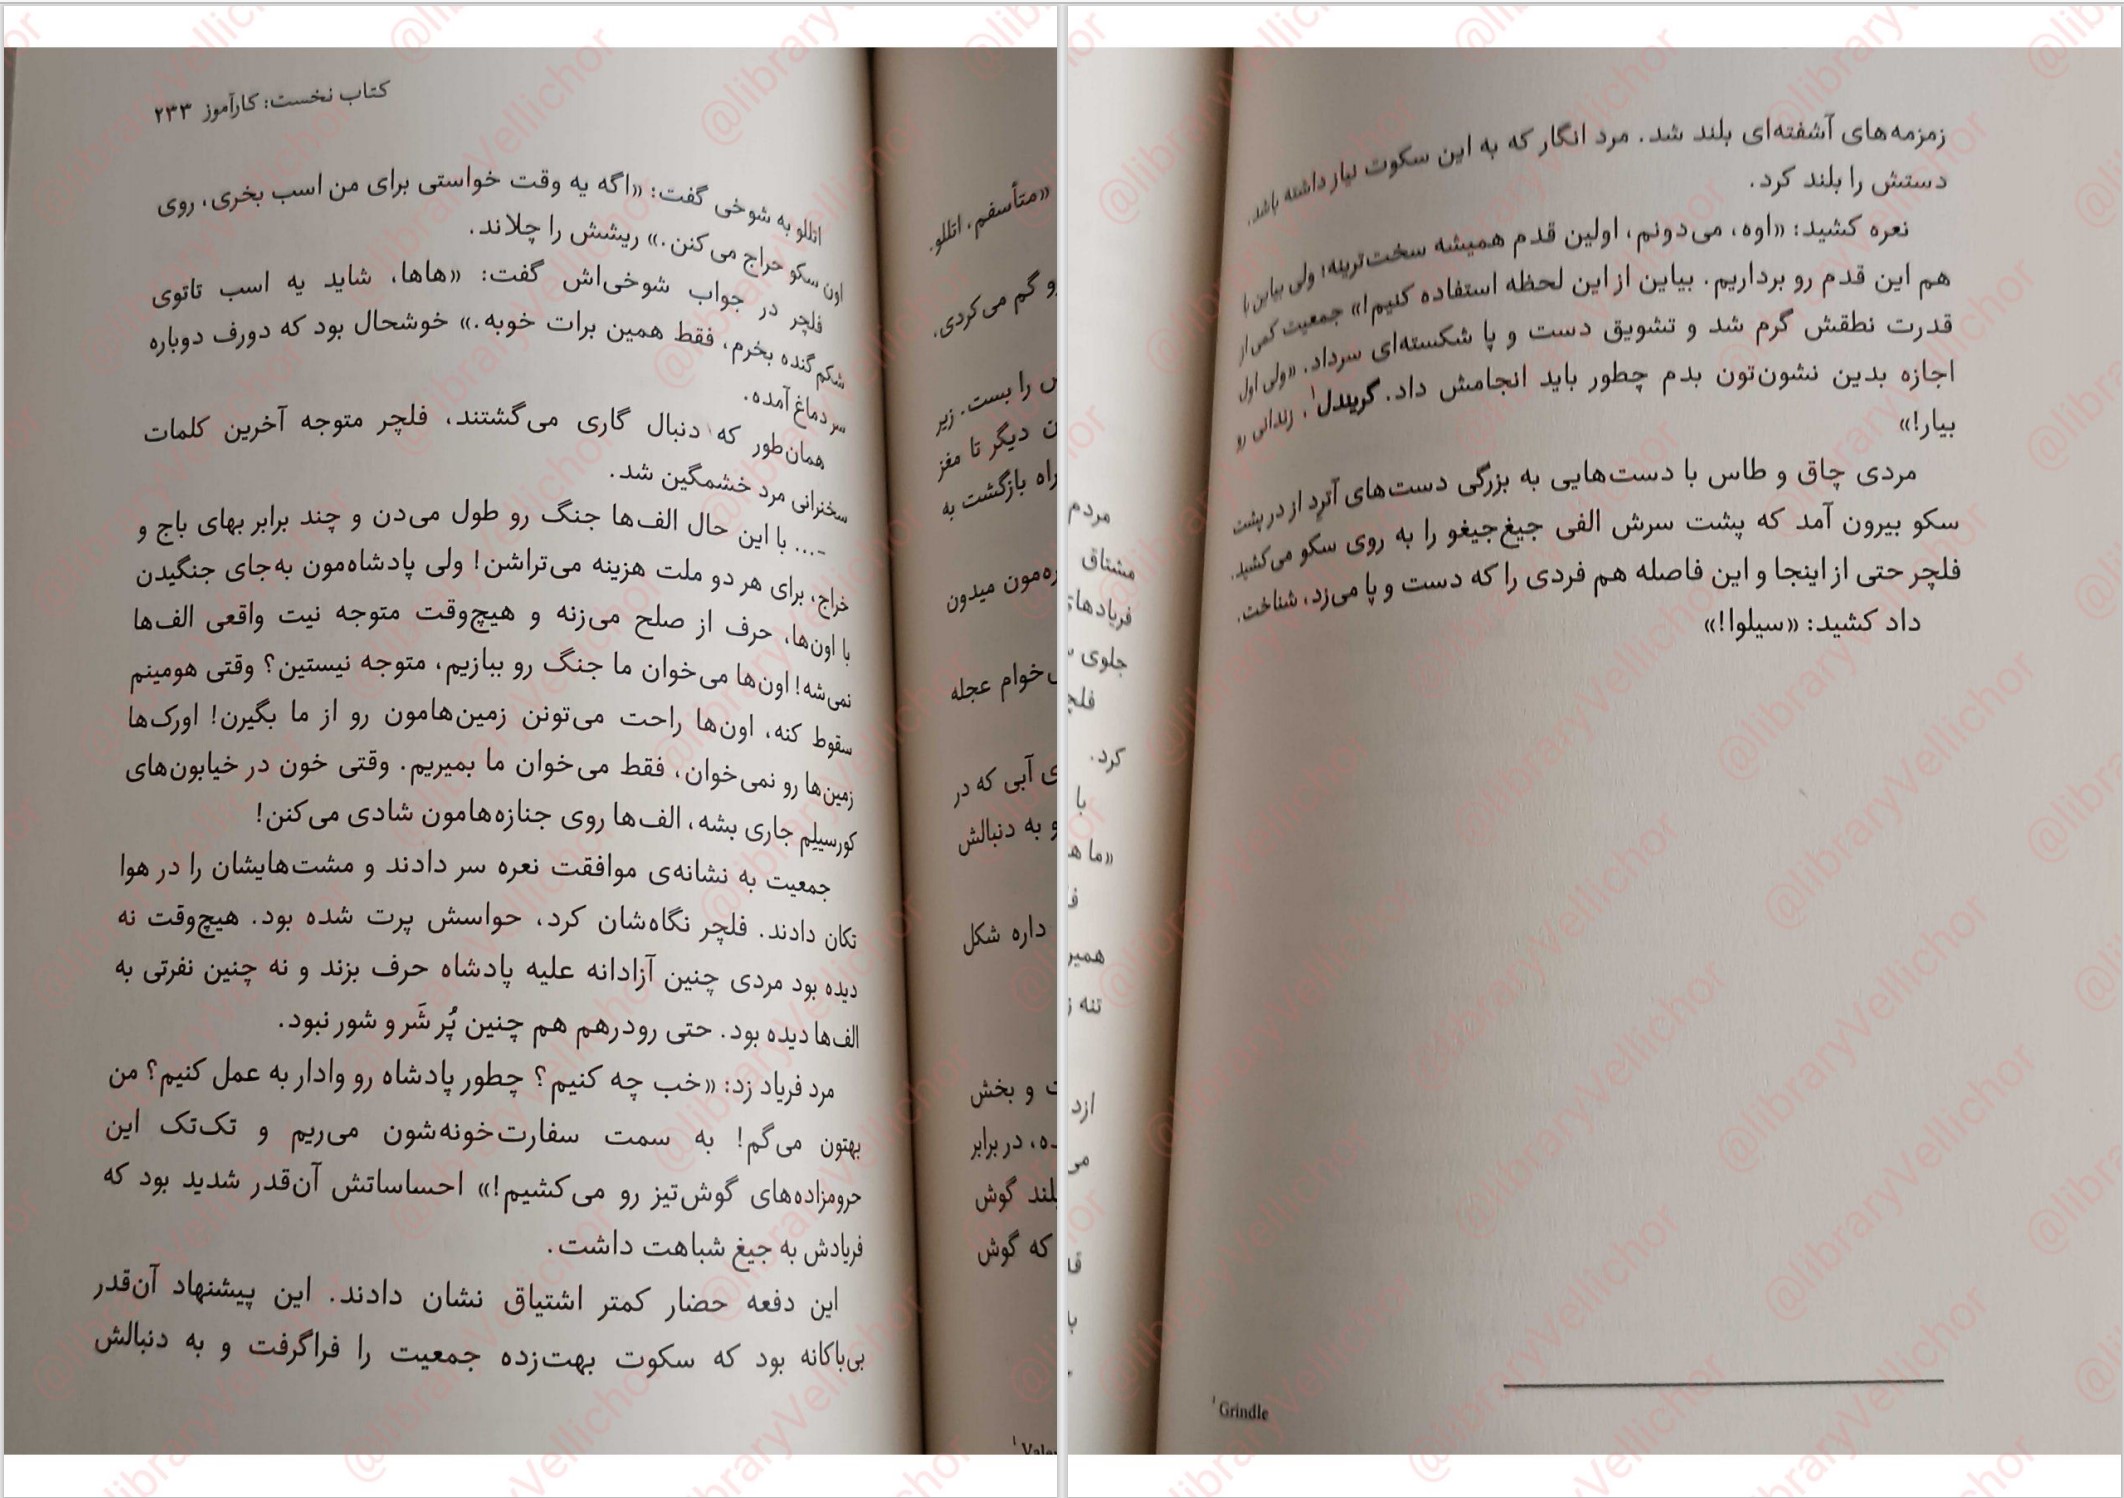 کتاب نخست: کارآموز ۲۳۳
اتللو به شوخی گفت: «اگه یه وقت خواستی برای من اسب بخری، روی
اون سکو حراج می‌کنن.» ریشش را چلاند.
فلچر در جواب شوخی‌اش گفت: «هاها، شاید یه اسب تاتوی
شکم گنده بخرم، فقط همین برات خوبه.» خوشحال بود که دورف دوباره
سر دماغ آمده.
همان‌طور که دنبال گاری می‌گشتند، فلچر متوجه آخرین کلمات
سخنرانی مرد خشمگین شد.
-... با این حال الف‌ها جنگ رو طول می‌دن و چند برابر بهای باج و
خراج، برای هر دو ملت هزینه می‌تراشن! ولی پادشاه‌مون به‌جای جنگیدن
با اون‌ها، حرف از صلح می‌زنه و هیچ‌وقت متوجه نیت واقعی الف‌ها
نمی‌شه! اون‌ها می‌خوان ما جنگ رو ببازیم، متوجه نیستین؟ وقتی هومینم
سقوط کنه، اون‌ها راحت می‌تونن زمین‌هامون رو از ما بگیرن! اورک‌ها
زمین‌ها رو نمی‌خوان، فقط می‌خوان ما بمیریم. وقتی خون در خیابون‌های
کورسیلم جاری بشه، الف‌ها روی جنازه‌هامون شادی می‌کنن!
جمعیت به نشانه‌ی موافقت نعره سر دادند و مشت‌هایشان را در هوا
تکان دادند. فلچر نگاه‌شان کرد، حواسش پرت شده بود. هیچ‌وقت نه
دیده بود مردی چنین آزادانه علیه پادشاه حرف بزند و نه چنین نفرتی به
الف‌ها دیده بود. حتی رودرهم هم چنین پُر شَر و شور نبود.
مرد فریاد زد: «خب چه کنیم؟ چطور پادشاه رو وادار به عمل کنیم؟ من
بهتون می‌گم! به سمت سفارت‌خونه‌شون می‌ریم و تک‌تک این
حرومزاده‌های گوش‌تیز رو می‌کشیم!» احساساتش آن‌قدر شدید بود که
فریادش به جیغ شباهت داشت.
این دفعه حضار کمتر اشتیاق نشان دادند. این پیشنهاد آن‌قدر
بی‌باکانه بود که سکوت بهت‌زده جمعیت را فراگرفت و به دنبالش
«متأسفم، اتللو.
و گم می‌کردی.
را بست. زیر
دیگر تا مغز
راه بازگشت به
میدون
خوام عجله
آبی که در
و به دنبالش
داره شکل
و بخش
در برابر
گوش
که گوش
زمزمه‌های آشفته‌ای بلند شد. مرد انگار که به این سکوت نیاز داشته باشد،
دستش را بلند کرد.
نعره کشید: «اوه، می‌دونم، اولین قدم همیشه سخت‌ترینه؛ ولی بیاین با
هم این قدم رو برداریم. بیاین از این لحظه استفاده کنیم!» جمعیت کمی از
قدرت نطقش گرم شد و تشویق دست و پا شکسته‌ای سرداد. «ولی اول
اجازه بدین نشون‌تون بدم چطور باید انجامش داد. گریندل¹، زندانی رو
بیار!»
مردی چاق و طاس با دست‌هایی به بزرگی دست‌های آترِد از در پشت
سکو بیرون آمد که پشت سرش الفی جیغ‌جیغو را به روی سکو می‌کشید.
فلچر حتی از اینجا و این فاصله هم فردی را که دست و پا می‌زد، شناخت.
داد کشید: «سیلوا!»
مردم
مشتاق
جلوی
کرد.
با
«ما
¹ Grindle
@libraryVellichor